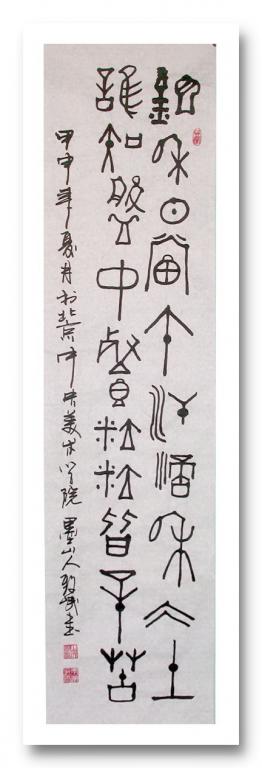 鋤禾日當午汗滴禾下土
誰知盤中餐粒粒皆辛苦
甲申年夏月於北京中央美术学院墨山人